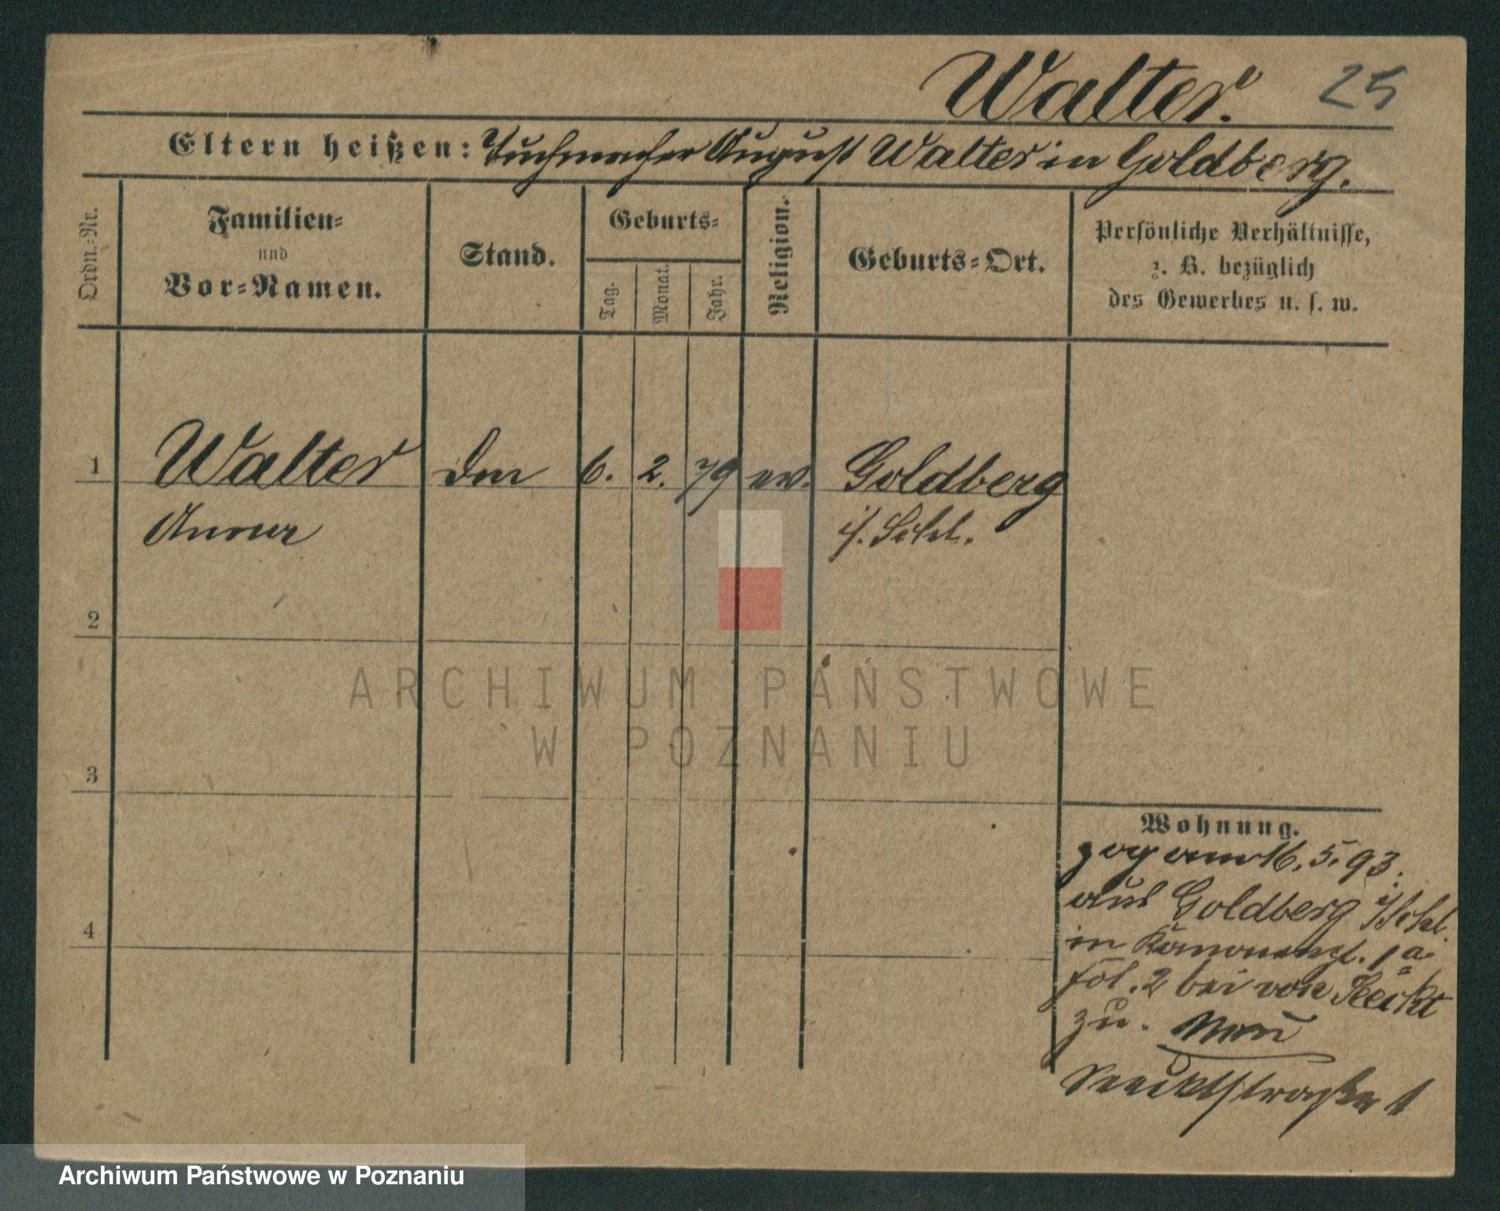 Walter. 25
Eltern heißen: Tuchmacher August Walter in Goldberg.
Ordn.=Nr.
Familien=
und
Vor=Namen.
Stand.
Geburts=
Tag.
Monat.
Jahr.
Religion.
Geburts=Ort.
Persönliche Verhältnisse,
z. B. bezüglich
des Gewerbes u. s. w.
1 Walter 6. 2. 79 ev. Goldberg
Anna i/. Schl.
2
3
4
Wohnung.
zog am 16. 5. 93.
aus Goldberg i/Schl.
in 1a
fol. 2 bei von
zu.
1
ARCHIWUM PAŃSTWOWE
W POZNANIU
Archiwum Państwowe w Poznaniu